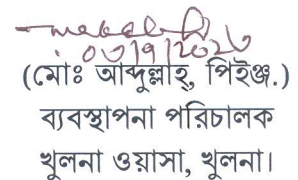 (মোঃ আব্দুল্লাহ্, পিইঞ্জ.)
ব্যবস্থাপনা পরিচালক
খুলনা ওয়াসা, খুলনা।